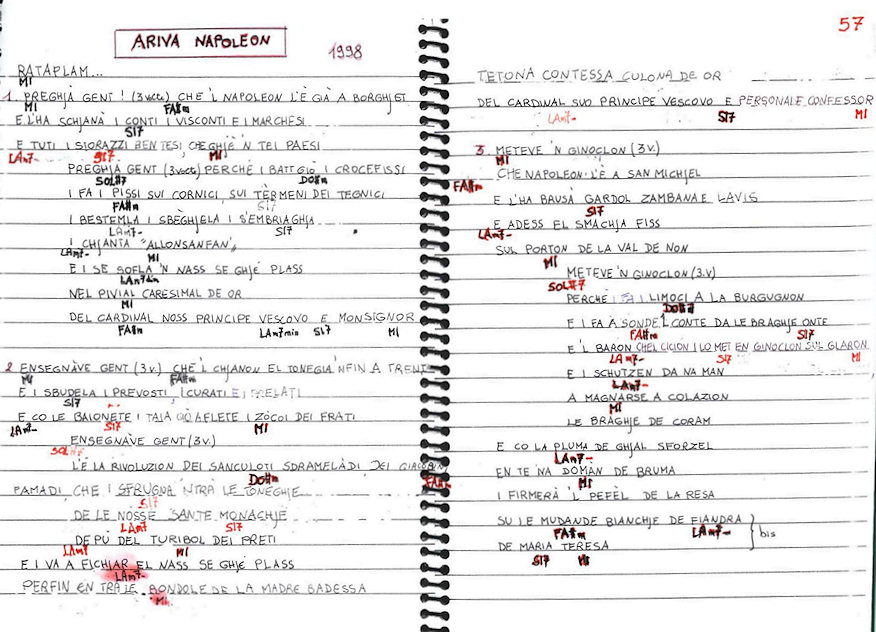 ARIVA NAPOLEON
1998
RATAPLAM...
MI
1 PREGHJÀ GENT! (3 volte) CHE 'L NAPOLEON L'È GIÀ A BORGHJET
MI FA#m
E L'HA SCHJANÀ I CONTI I VISCONTI E I MARCHESI
SI7
E TUTI I SIORAZZI BEN TESI, CHE GHJÈ 'N TEI PAESI
LAm7- SI7 MI
PREGHJÀ GENT (3 volte) PERCHÈ I BATTGIÒ I CROCEFISSI
SOL#7 DO#m
I FA I PISSI SUI CORNICI, SUI TÈRMENI DEI TEGNICI
FA#m SI7
I BESTEMLA I SBÈGHJELA I S'EMBRIAGHJA
LAm7- SI7
I CHJANTA "ALLONSANFAN"
LAm7- MI
E I SE SOFLA 'N NASS SE GHJÈ PLASS
LAm7dim
NEL PIVIAL CARESIMAL DE OR
MI
DEL CARDINAL NOSS PRINCIPE VESCOVO E MONSIGNOR
FA#m LAm7min SI7 MI
2 ENSEGNÀVE GENT (3 v.) CHE 'L CHJANON EL TONEGIA 'NFIN A TRENT
MI FA#m
E I SBUDELA I PREVOSTI, I CURATI E I PRELATI
SI7
E CO LE BAIONETE I TAIA GIÒ A FLETE I ZÒCOI DEI FRATI
LAm7- SI7 MI
ENSEGNÀVE GENT (3 v.)
SOL#7
L'È LA RIVOLUZION DEI SANCULOTI SDRAMELÀDI DEI GIACOBIN
DO#m FA#m
PAMADI, CHE I SFRUGNA 'NTRÀ LE TONEGHJE
SI7
DE LE NOSSE SANTE MONAGHJE
LAm7 SI7
DE PÙ DEL TURIBOL DEI PRETI
LAm7 MI
E I VA A FICHJAR EL NASS SE GHJÈ PLASS
LAm7-
PERFIN EN TRA LE BONDOLE DE LA MADRE BADESSA
MI
57
TETONA CONTESSA CULONA DE OR
DEL CARDINAL SUO PRINCIPE VESCOVO E PERSONALE CONFESSOR
LAm7- SI7 MI
3. METEVE 'N GINOCLON (3 v.)
MI
CHE NAPOLEON L'È A SAN MICHJEL
FA#m
E L'HA BAUSÀ GARDOL ZAMBANA E LAVIS
SI7
E ADESS EL SMACHJA FISS
LAm7-
SUL PORTON DE LA VAL DE NON
MI
METEVE 'N GINOCLON (3.v)
SOL#7
PERCHÈ I FA I LIMOCI A LA BURGUGNON
DO#7
E I FA A SONDEL CONTE DA LE BRAGHJE ONTE
FA#m SI7
E 'L BARON CHEL CICION I LO MET EN GINOCLON SUL GLARON
LAm7- SI7 MI
E I SCHUTZEN DA NA MAN
LAm7-
A MAGNARSE A COLAZION
MI
LE BRAGHJE DE CORAM
E CO LA PLUMA DE GHJAL SFORZEL
LAm7-
EN TE NA DOMAN DE BRUMA
MI
I FIRMERÀ 'L PEFÈL DE LA RESA
SU LE MUDANDE BIANCHJE DE FIANDRA
FA#m LAm7- bis
DE MARIA TERESA
SI7 MI